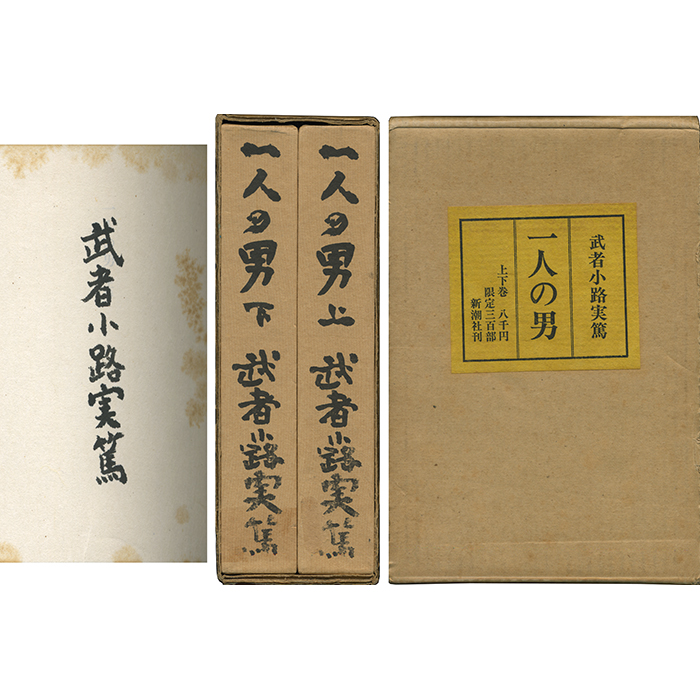 武者小路実篤
一人の男 上 武者小路実篤
一人の男 下 武者小路実篤
武者小路実篤
一人の男
上下巻 八千円
限定三百部
新潮社刊